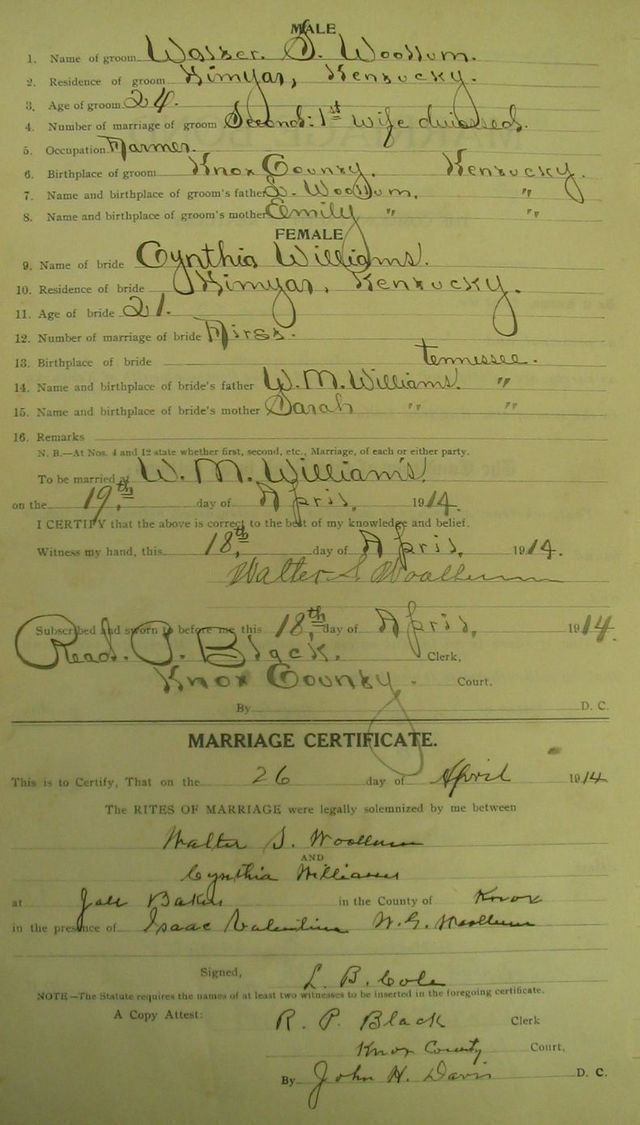 MALE
1. Name of groom Walter. S. Woollum.
2. Residence of groom Himyar, Kentucky.
3. Age of groom 24.
4. Number of marriage of groom Second: 1st wife divorced.
5. Occupation Farmer.
6. Birthplace of groom Knox County, Kentucky.
7. Name and birthplace of groom's father S. Woollum, "
8. Name and birthplace of groom's mother Emily " "
FEMALE
9. Name of bride Cynthia Williams.
10. Residence of bride Himyar, Kentucky.
11. Age of bride 21.
12. Number of marriage of bride First.
13. Birthplace of bride tennessee.
14. Name and birthplace of bride's father W. M. Williams. "
15. Name and birthplace of bride's mother Sarah " "
16. Remarks
N. B.—At Nos. 4 and 12 state whether first, second, etc., Marriage, of each or either party.
To be married at W. M. William's.
on the 19,th day of April, 1914.
I CERTIFY that the above is correct to the best of my knowledge and belief.
Witness my hand, this 18,th day of April, 1914.
Walter S Woollum
Subscribed and sworn to before me this 18,th day of April, 1914.
Read. P. Black. Clerk,
Knox County. Court.
By D. C.
MARRIAGE CERTIFICATE.
This is to Certify, That on the 26 day of April 1914
The RITES OF MARRIAGE were legally solemnized by me between
Walter S. Woollum
AND
Cynthia Williams
at Bakers in the County of Knox
in the presence of Isaac Valentine W. G. Woollum
Signed, L. B. Cole
NOTE—The Statute requires the names of at least two witnesses to be inserted in the foregoing certificate.
A Copy Attest: R. P. Black Clerk
Knox County Court,
By John H. Davis D. C.